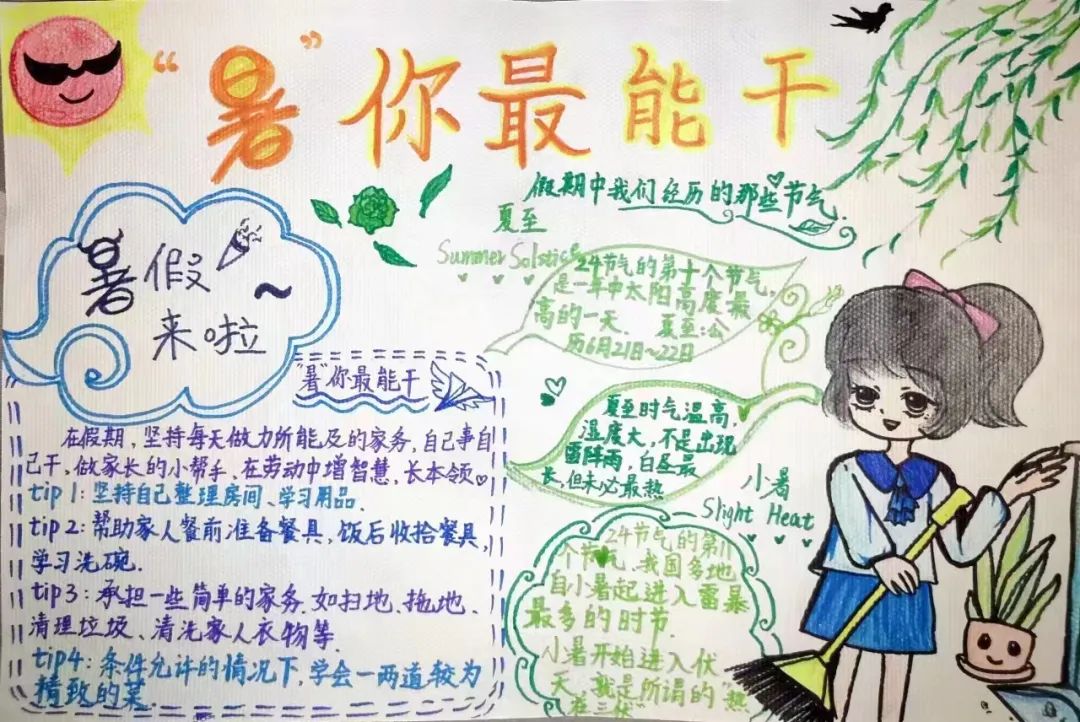 “暑”你最能干
假期中我们经历的那些节气.
暑假
来啦~
夏至
Summer Solstice
24节气的第十个节气,
是一年中太阳高度最
高的一天. 夏至:公
历6月21日~22日
"暑"你最能干
在假期,坚持每天做力所能及的家务,自己事自
己干,做家长的小帮手,在劳动中增智慧,长本领
tip 1:坚持自己整理房间、学习用品.
tip 2:帮助家人餐前准备餐具,饭后收拾餐具,
学习洗碗.
tip3:承担一些简单的家务.如扫地、拖地、
清理垃圾、清洗家人衣物等
tip4:条件允许的情况下,学会一两道较为
精致的菜.
夏至时气温高,
湿度大,不是出现
雷阵雨,白昼最
长,但未必最热
小暑
Slight Heat
24节气的第11
个节气.我国多地
自小暑起进入雷暴
最多的时节.
小暑开始进入伏
天.就是所谓的“热
在三伏”